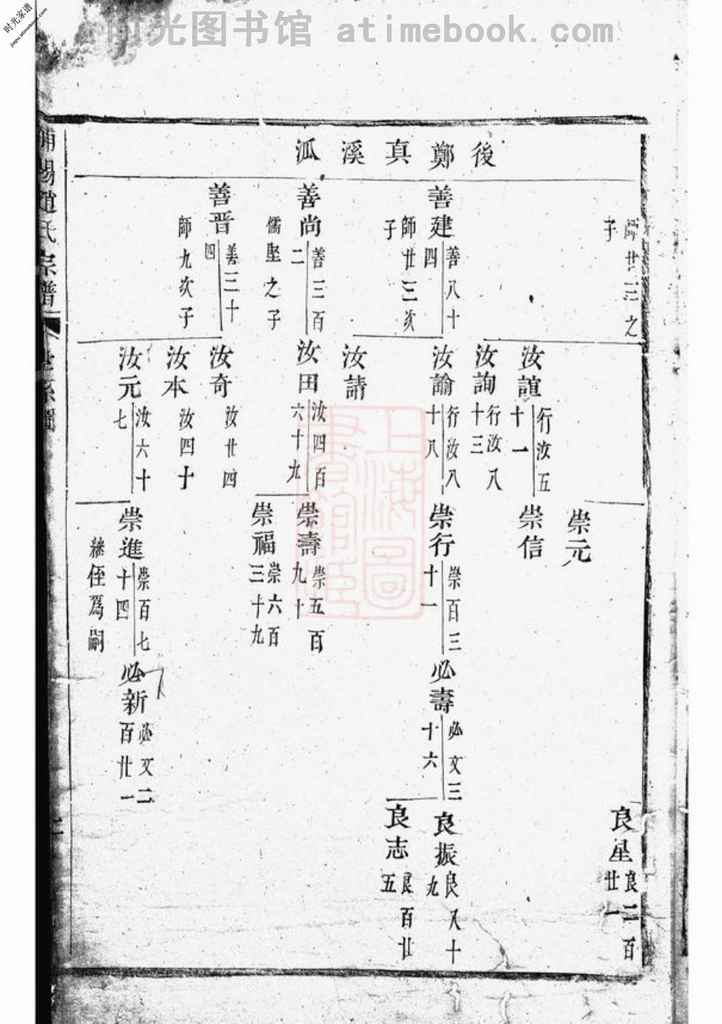 时光图书馆 atimebook.com
时光家谱
後鄭真溪派
師廿三之
子
善建
善八十
四
師廿三次
子
善尚
善三百
二
儒堅之子
善晋
善三十
四
師九次子
汝誼
行汝五
十一
汝詢
行汝八
十三
汝諭
行汝八
十八
汝請
汝田
汝四百
六十九
汝奇
汝廿四
汝本
汝四十
汝元
汝六十
七
崇元
崇信
崇行
崇百三
十一
崇壽
崇五百
九十
崇福
崇六百
三十九
崇進
崇百七
十四
繼侄為嗣
必壽
必文三
十六
必新
必文二
百廿一
良星
良二百
廿一
良振
良八十
九
良志
良百廿
五
趙氏宗譜
世系圖